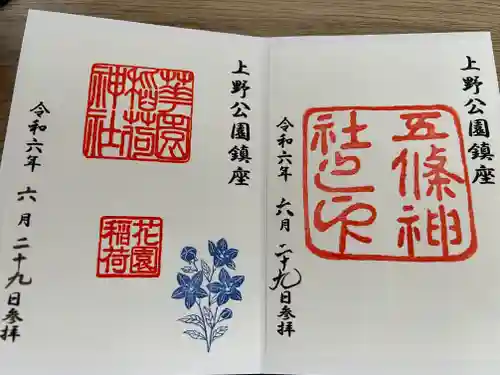 上野公園鎮座
五條神
社之印
令和六年 六月 二十九日参拝
上野公園鎮座
華園
稲荷
神社
花園
稲荷
令和六年 六月 二十九日参拝